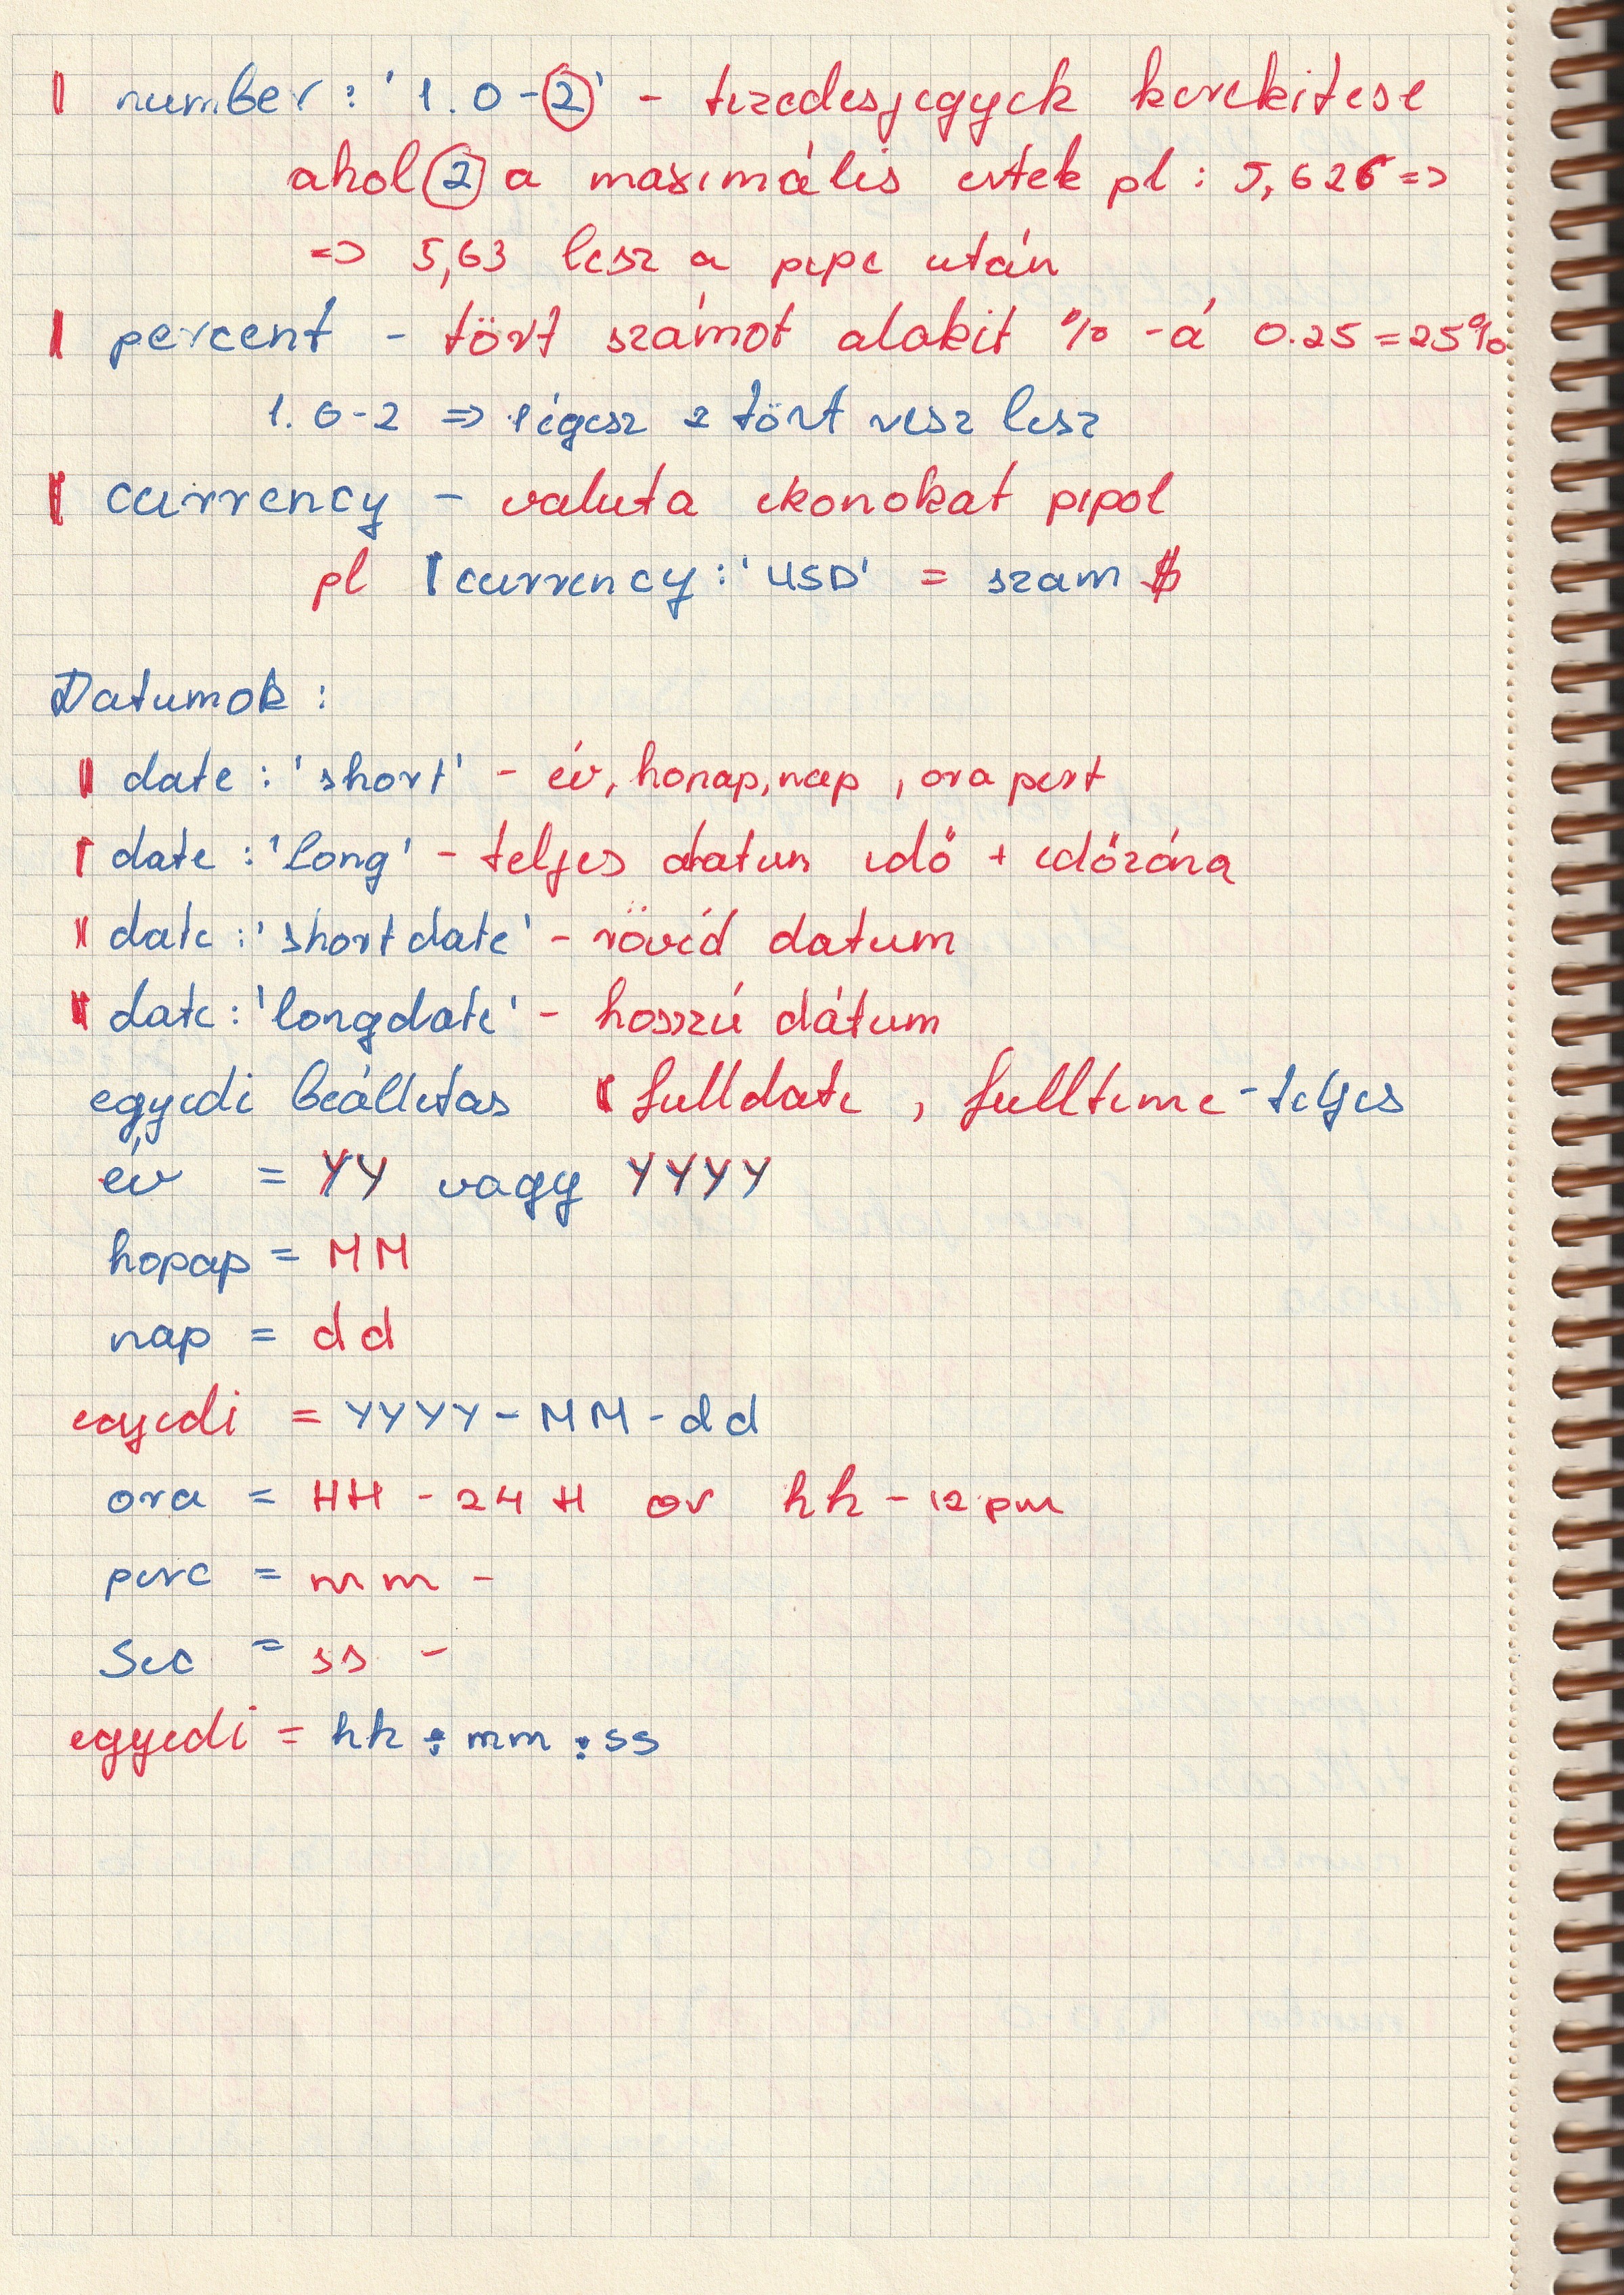 | number : '1.0-2' - tizedesjegyek kerekitese
ahol 2 a maximális ertek pl : 5,626 =>
=> 5,63 lesz a pipe után
| percent - tört számot alakit % -á 0.25 = 25%
1.0-2 => 1 egesz 2 tört resz lesz
| currency - valuta ikonokat pipol
pl | currency : 'USD' = szam $
Datumok :
| date : 'short' - év, honap, nap , ora pert
| date : 'long' - teljes datum idő + időzóna
| date : 'shortdate' - rövid datum
| date : 'longdate' - hosszú dátum
egyedi beállitas | fulldate , fulltime - teljes
év = YY vagy YYYY
hopap = MM
nap = dd
egyedi = YYYY - MM - dd
ora = HH - 24 H or hh - 12 pm
perc = mm -
Sec = ss -
egyedi = hh : mm : ss